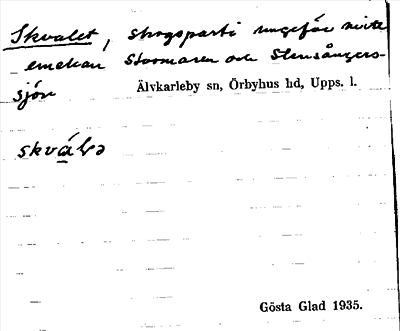 Skvalet, skogsparti ungefär mitt
emellan Stormaren och Stensångers-
sjön
Älvkarleby sn, Örbyhus hd, Upps. l.
skvála
Gösta Glad 1935.